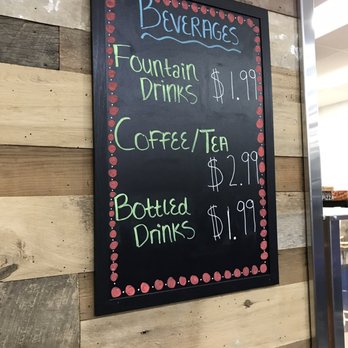 Beverages
Fountain
Drinks $1.99
Coffee/Tea
$2.99
Bottled
Drinks $1.99